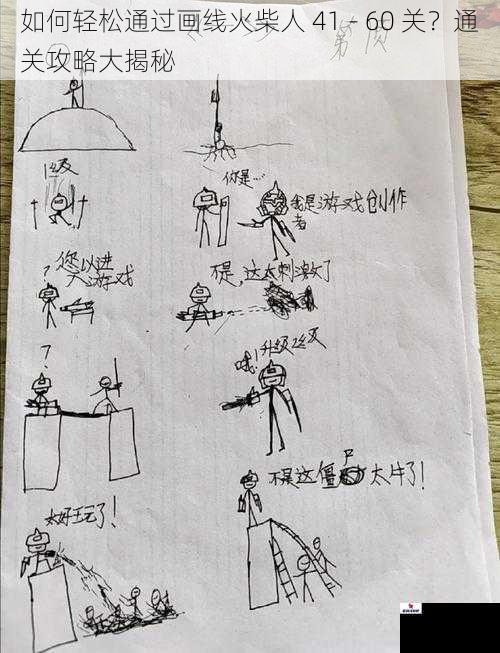 如何轻松通过画线火柴人 41 - 60 关？通
关攻略大揭秘
1级
你是…
我是游戏创作
者
?
您以进
入游戏
不是,这太刺激了
?
哦!升级2级
不是这僵尸太牛了!
太好玩了!